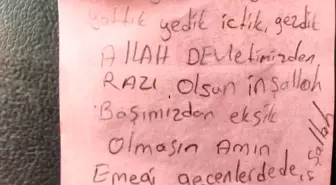 yattık yedik içtik, gezdik
ALLAH DEVLetimizden
RAZI Olsun inşallah
Başımızdan eksik
Olmasın Amin
Emeği geçenlerdede, iş